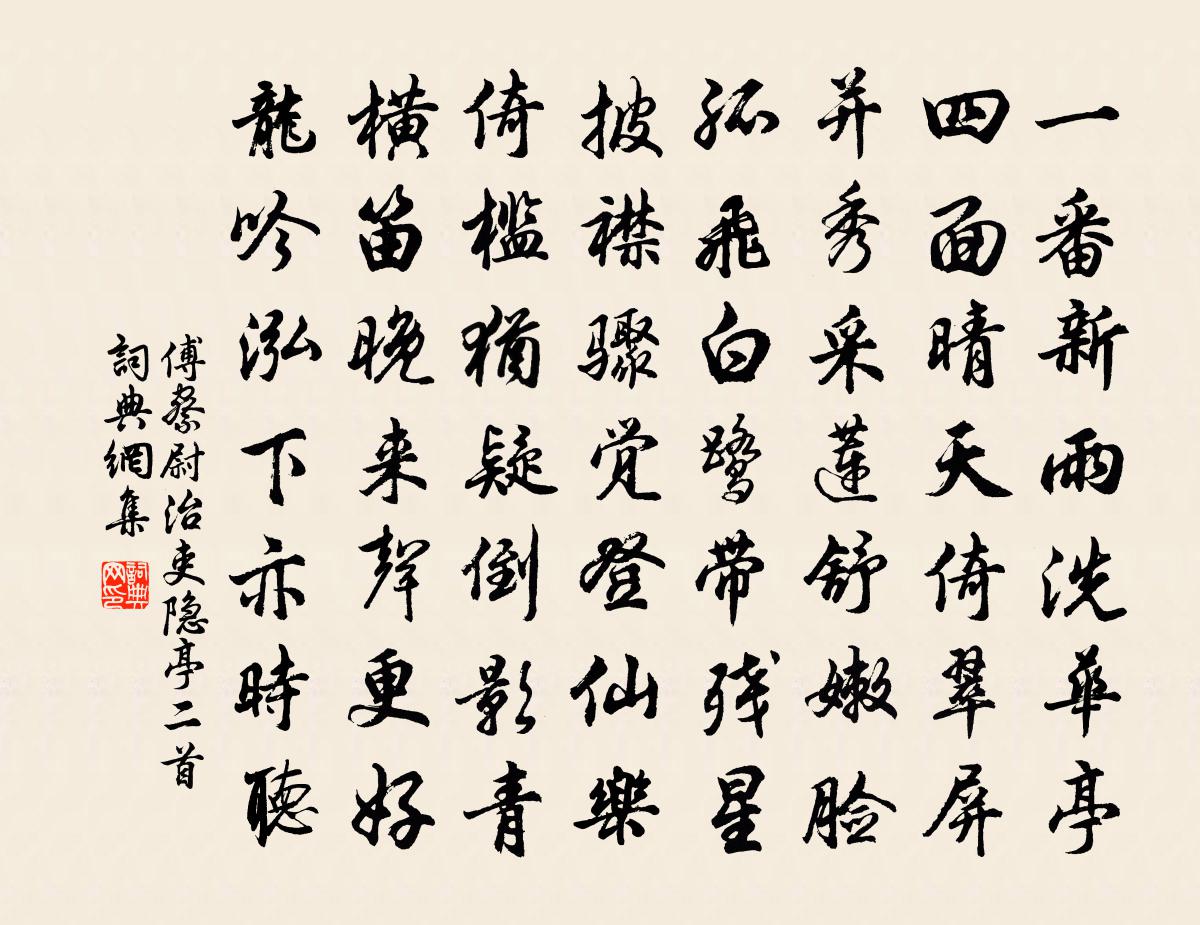 一番新雨洗華亭
四面晴天倚翠屏
并秀采蓮舒嫩脸
孤飛白鹭带残星
披襟驟覚登仙樂
倚檻猶疑倒影青
橫笛晚来聲更好
龍吟泓下亦時聽
傅察尉治吏隐亭二首
詞典網集
詞典网印